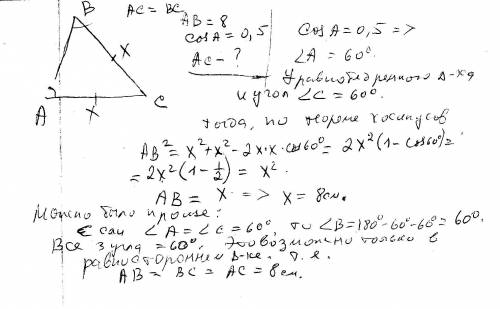 B
AC = BC
AB = 8
cos A = 0,5
AC - ?
cos A = 0,5 =>
∠A = 60°.
X
A
X
C
У равнобедренного Δ-ка
и угол ∠C = 60°.
тогда, по теореме косинусов
AB² = x² + x² - 2x·x·cos60° = 2x²(1 - cos60°) =
= 2x²(1 - 1/2) = x².
AB = x. => x = 8 см.
Можно было проще:
Если ∠A = ∠C = 60°, то ∠B = 180° - 60 - 60° = 60°.
Все 3 угла = 60°. Это возможно только в
равностороннем Δ-ке. т.е.
AB = BC = AC = 8 см.